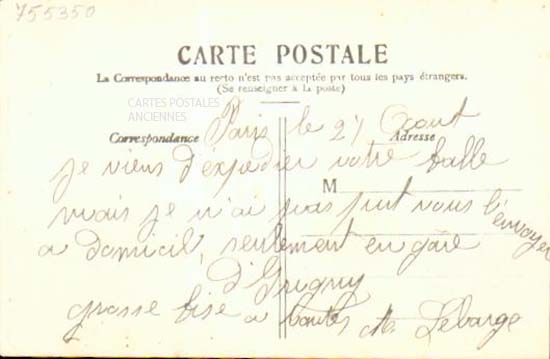 755350
CARTE POSTALE
La Correspondance au recto n'est pas acceptée par tous les pays étrangers.
(Se renseigner à la poste)
CARTES POSTALES
ANCIENNES
Correspondance
Adresse
M
Paris le 27 Aout
je viens d'expedier votre balle
mais je n'ai pas put vous l'envoyer
a domicil, seulement en gare
d'Grigny
grosse bise a toutes
Lebarge